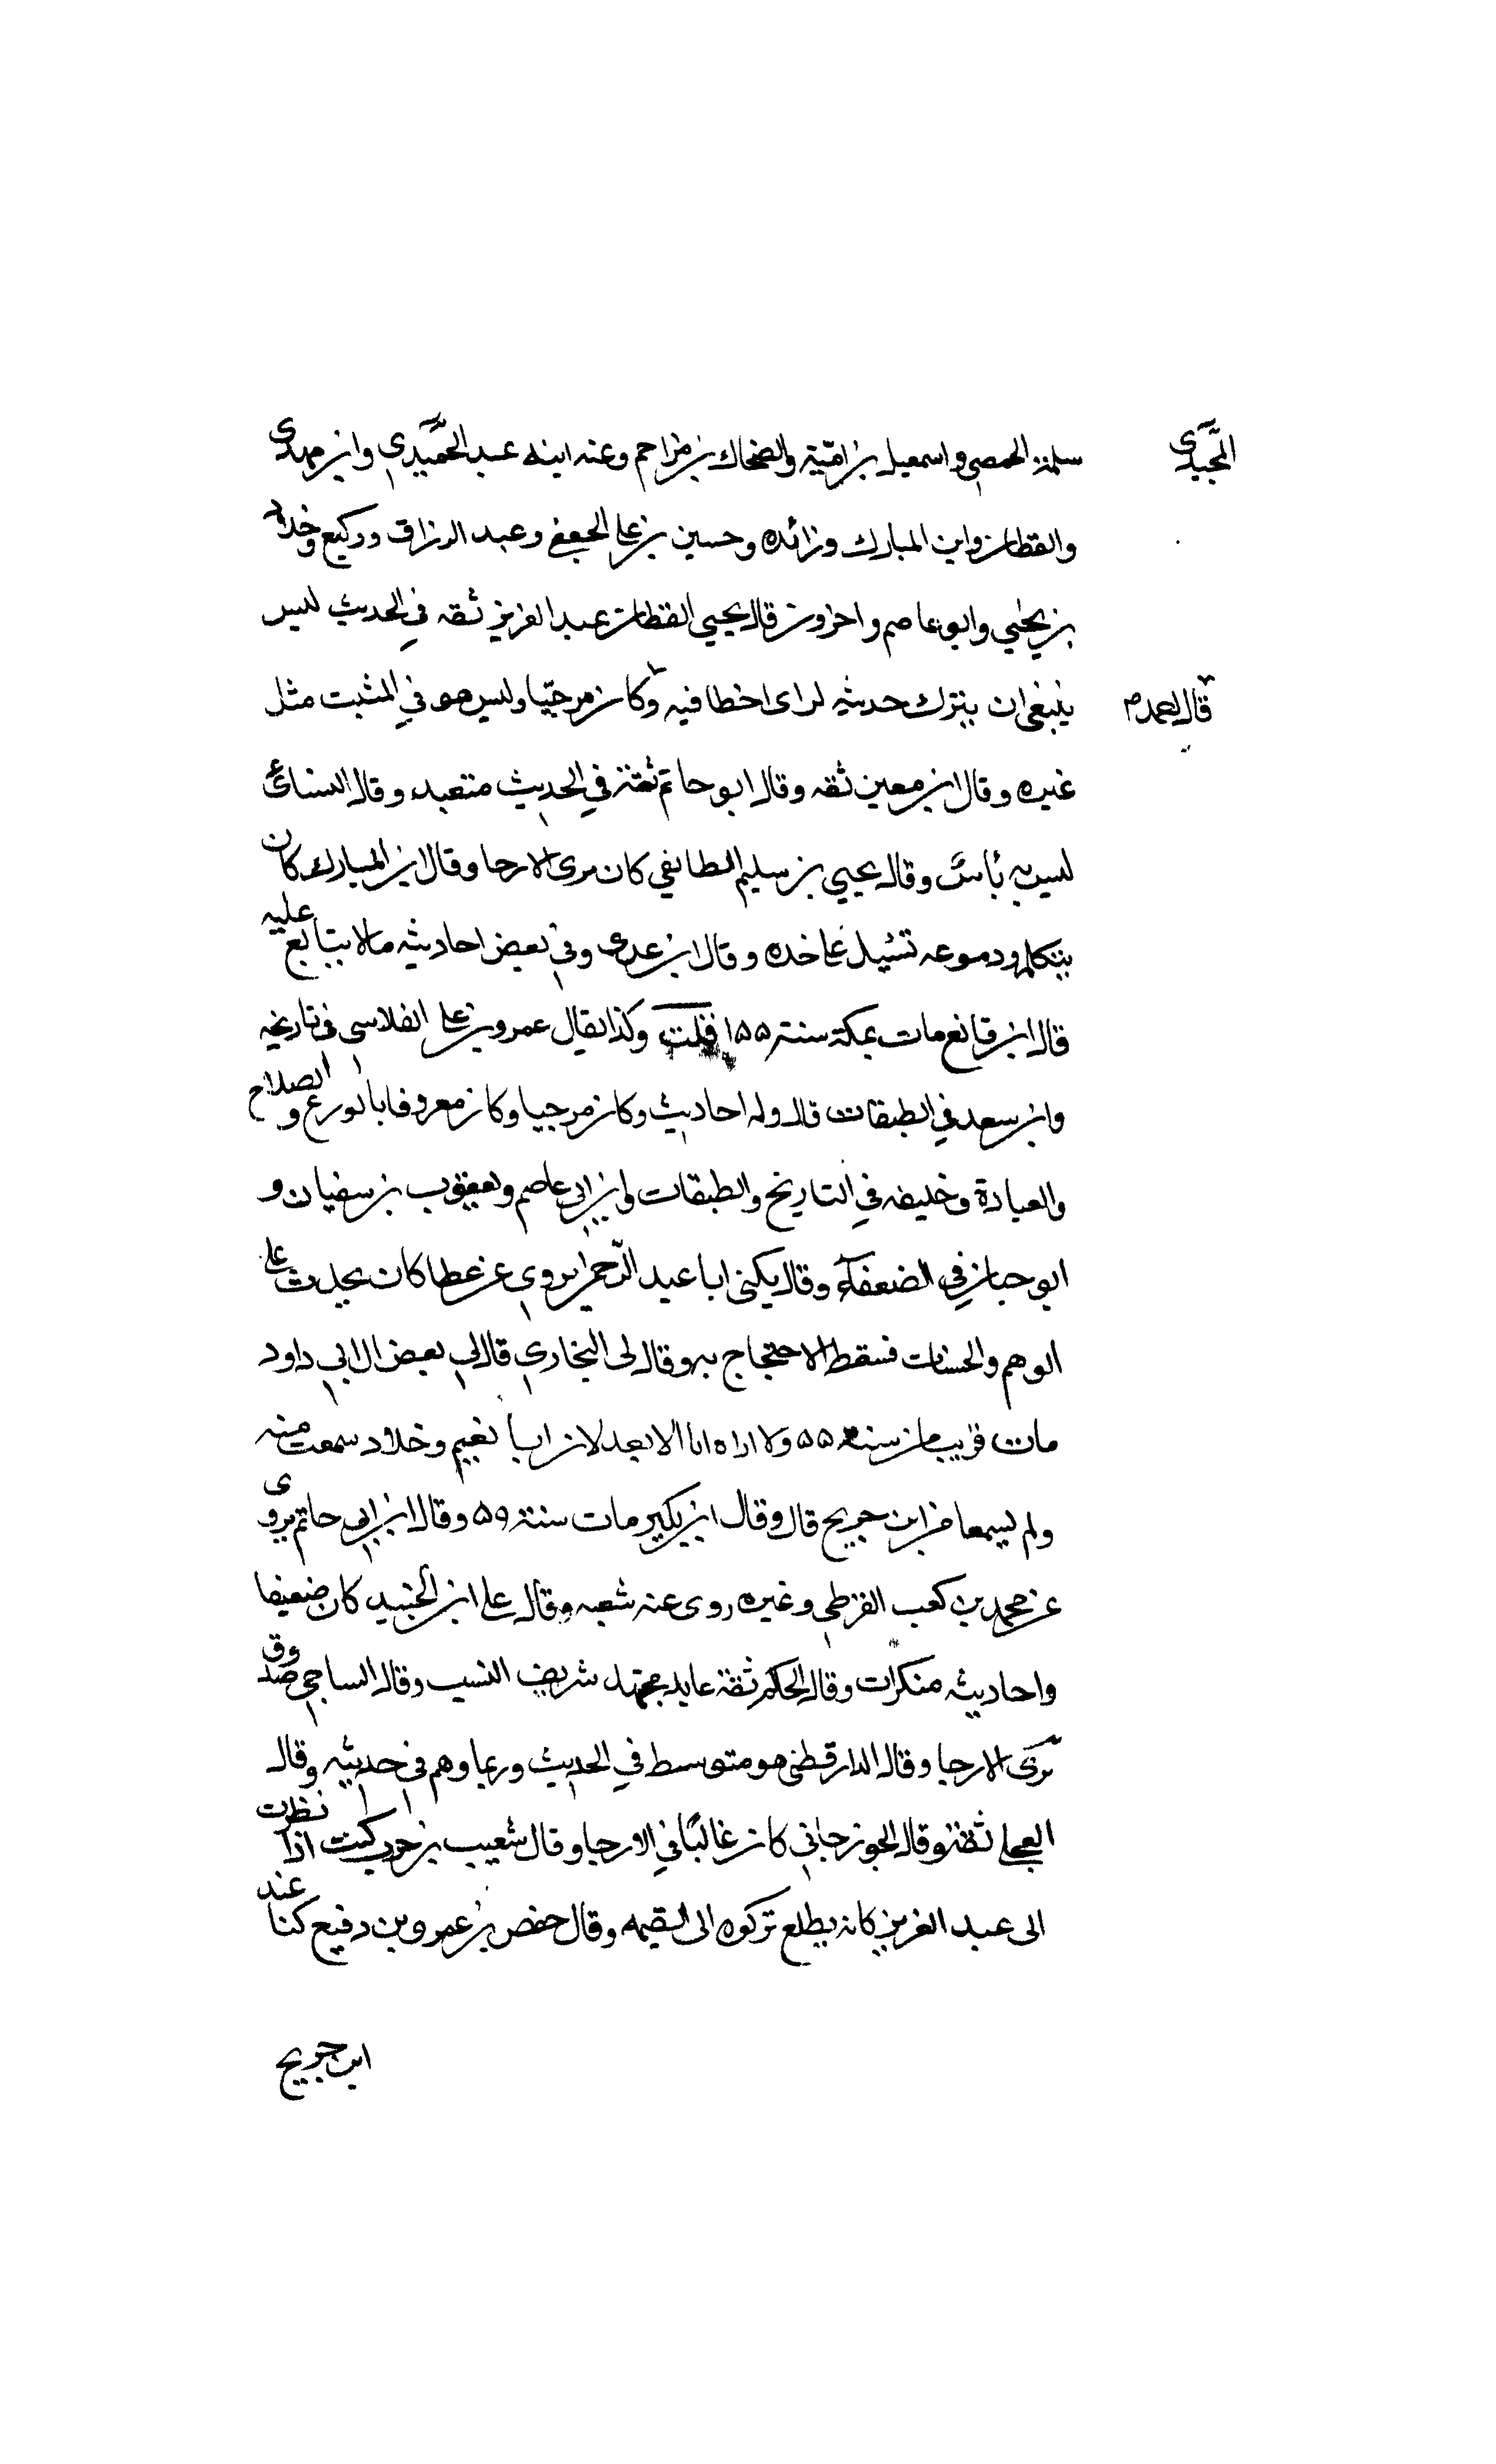 سلمة الحمصي واسمعيل بن امية والضحاك بن مزاحم وعنه ابنه عبد الحميدي وابن مهدى
المجيدى
والقطان وابن المبارك وزائده وحسين بن على الجعفي وعبد الرزاق ووكيع وخلاد
بن يحيي وابو عاصم واخرون قال يحيي القطان عبد العزيز ثقه في الحديث ليس
ينبغى ان يترك حديثه لراى اخطا فيه وكان مرجيا وليس هو في المثبت مثل
قال احمد
غيره وقال ابن معين ثقه وقال ابو حاتم ثقة في الحديث متعبد وقال النسائي
ليس به بأس وقال يحيي بن سليم الطايفي كان يرى الارجا وقال ابن المبارك كان
يتكلم ودموعه تسيل على خده وقال ابن عدى وفي بعض احاديثه مالا يتابع عليه
قال ابن قانع مات بمكة سنة ١٥٥ قلت وكذا قال عمرو بن على الفلاسى فى تاريخه
وابن سعد في الطبقات قال وله احاديث وكان مرجيا وكان معروفا بالورع والصلاح
والعبادة وخليفه في التاريخ والطبقات وابن ابي عاصم ويعقوب بن سفيان و
ابو حبان في الضعفاء وقال يكنى ابا عبد الرحمن يروى عن عطا كان يحدث على
الوهم والحسنات فسقط الاحتجاج به وقال لى البخاري قال لي بعض ال ابي داود
مات قريب من سنة ٥٥ ولا اراه انا الا بعد لان ابا نعيم وخلاد سمعت منه
ولم يسمعا من ابن جريج قال وقال ابن بكير مات سنة ٥٩ وقال ابن ابي حاتم يروى
عن محمد بن كعب القرظي وغيره روى عنه شعبه وقال على ابن الجنيد كان ضعيفا
واحاديثه منكرات وقال الحكم ثقة عابد مجتهد شريف النسب وقال الساجي صدوق
يرى الارجا وقال الدارقطنى هو متوسط في الحديث وربما وهم فى حديثه وقال
العجلى ثقة وقال الجوزجاني كان غالبا في الارجا وقال شعيب بن حرب كنت اذا نظرت
الى عبد العزيز كانه يطلع تركوه الى القيمه وقال حفص بن عمرو بن رفيع كنا عند
ابن جريج